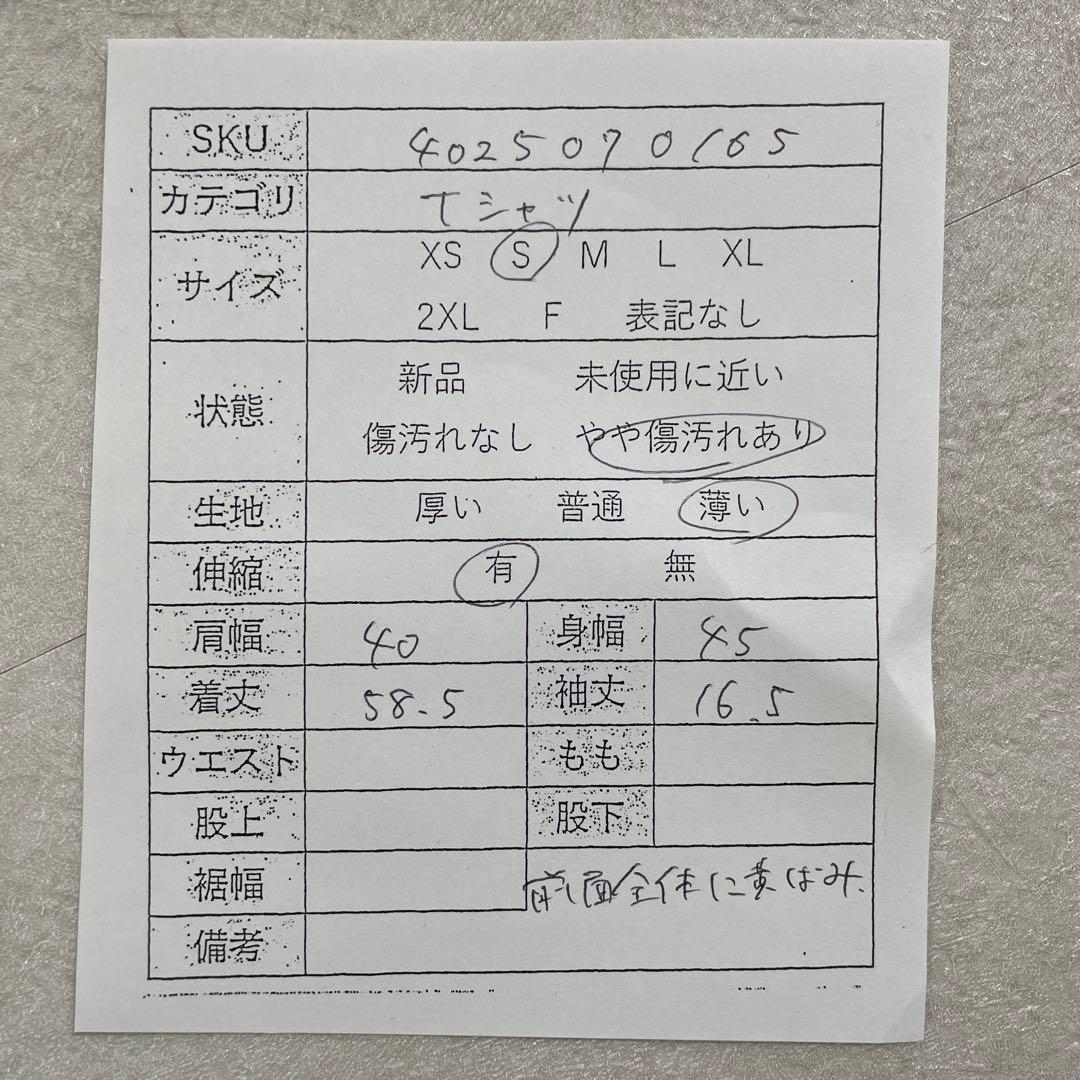 SKU 4025070165
カテゴリ Tシャツ
サイズ XS S M L XL
2XL F 表記なし
状態 新品 未使用に近い
傷汚れなし やや傷汚れあり
生地 厚い 普通 薄い
伸縮 有 無
肩幅 40 身幅 45
着丈 58.5 袖丈 16.5
ウエスト もも
股上 股下
裾幅 前面全体に黄ばみ、
備考